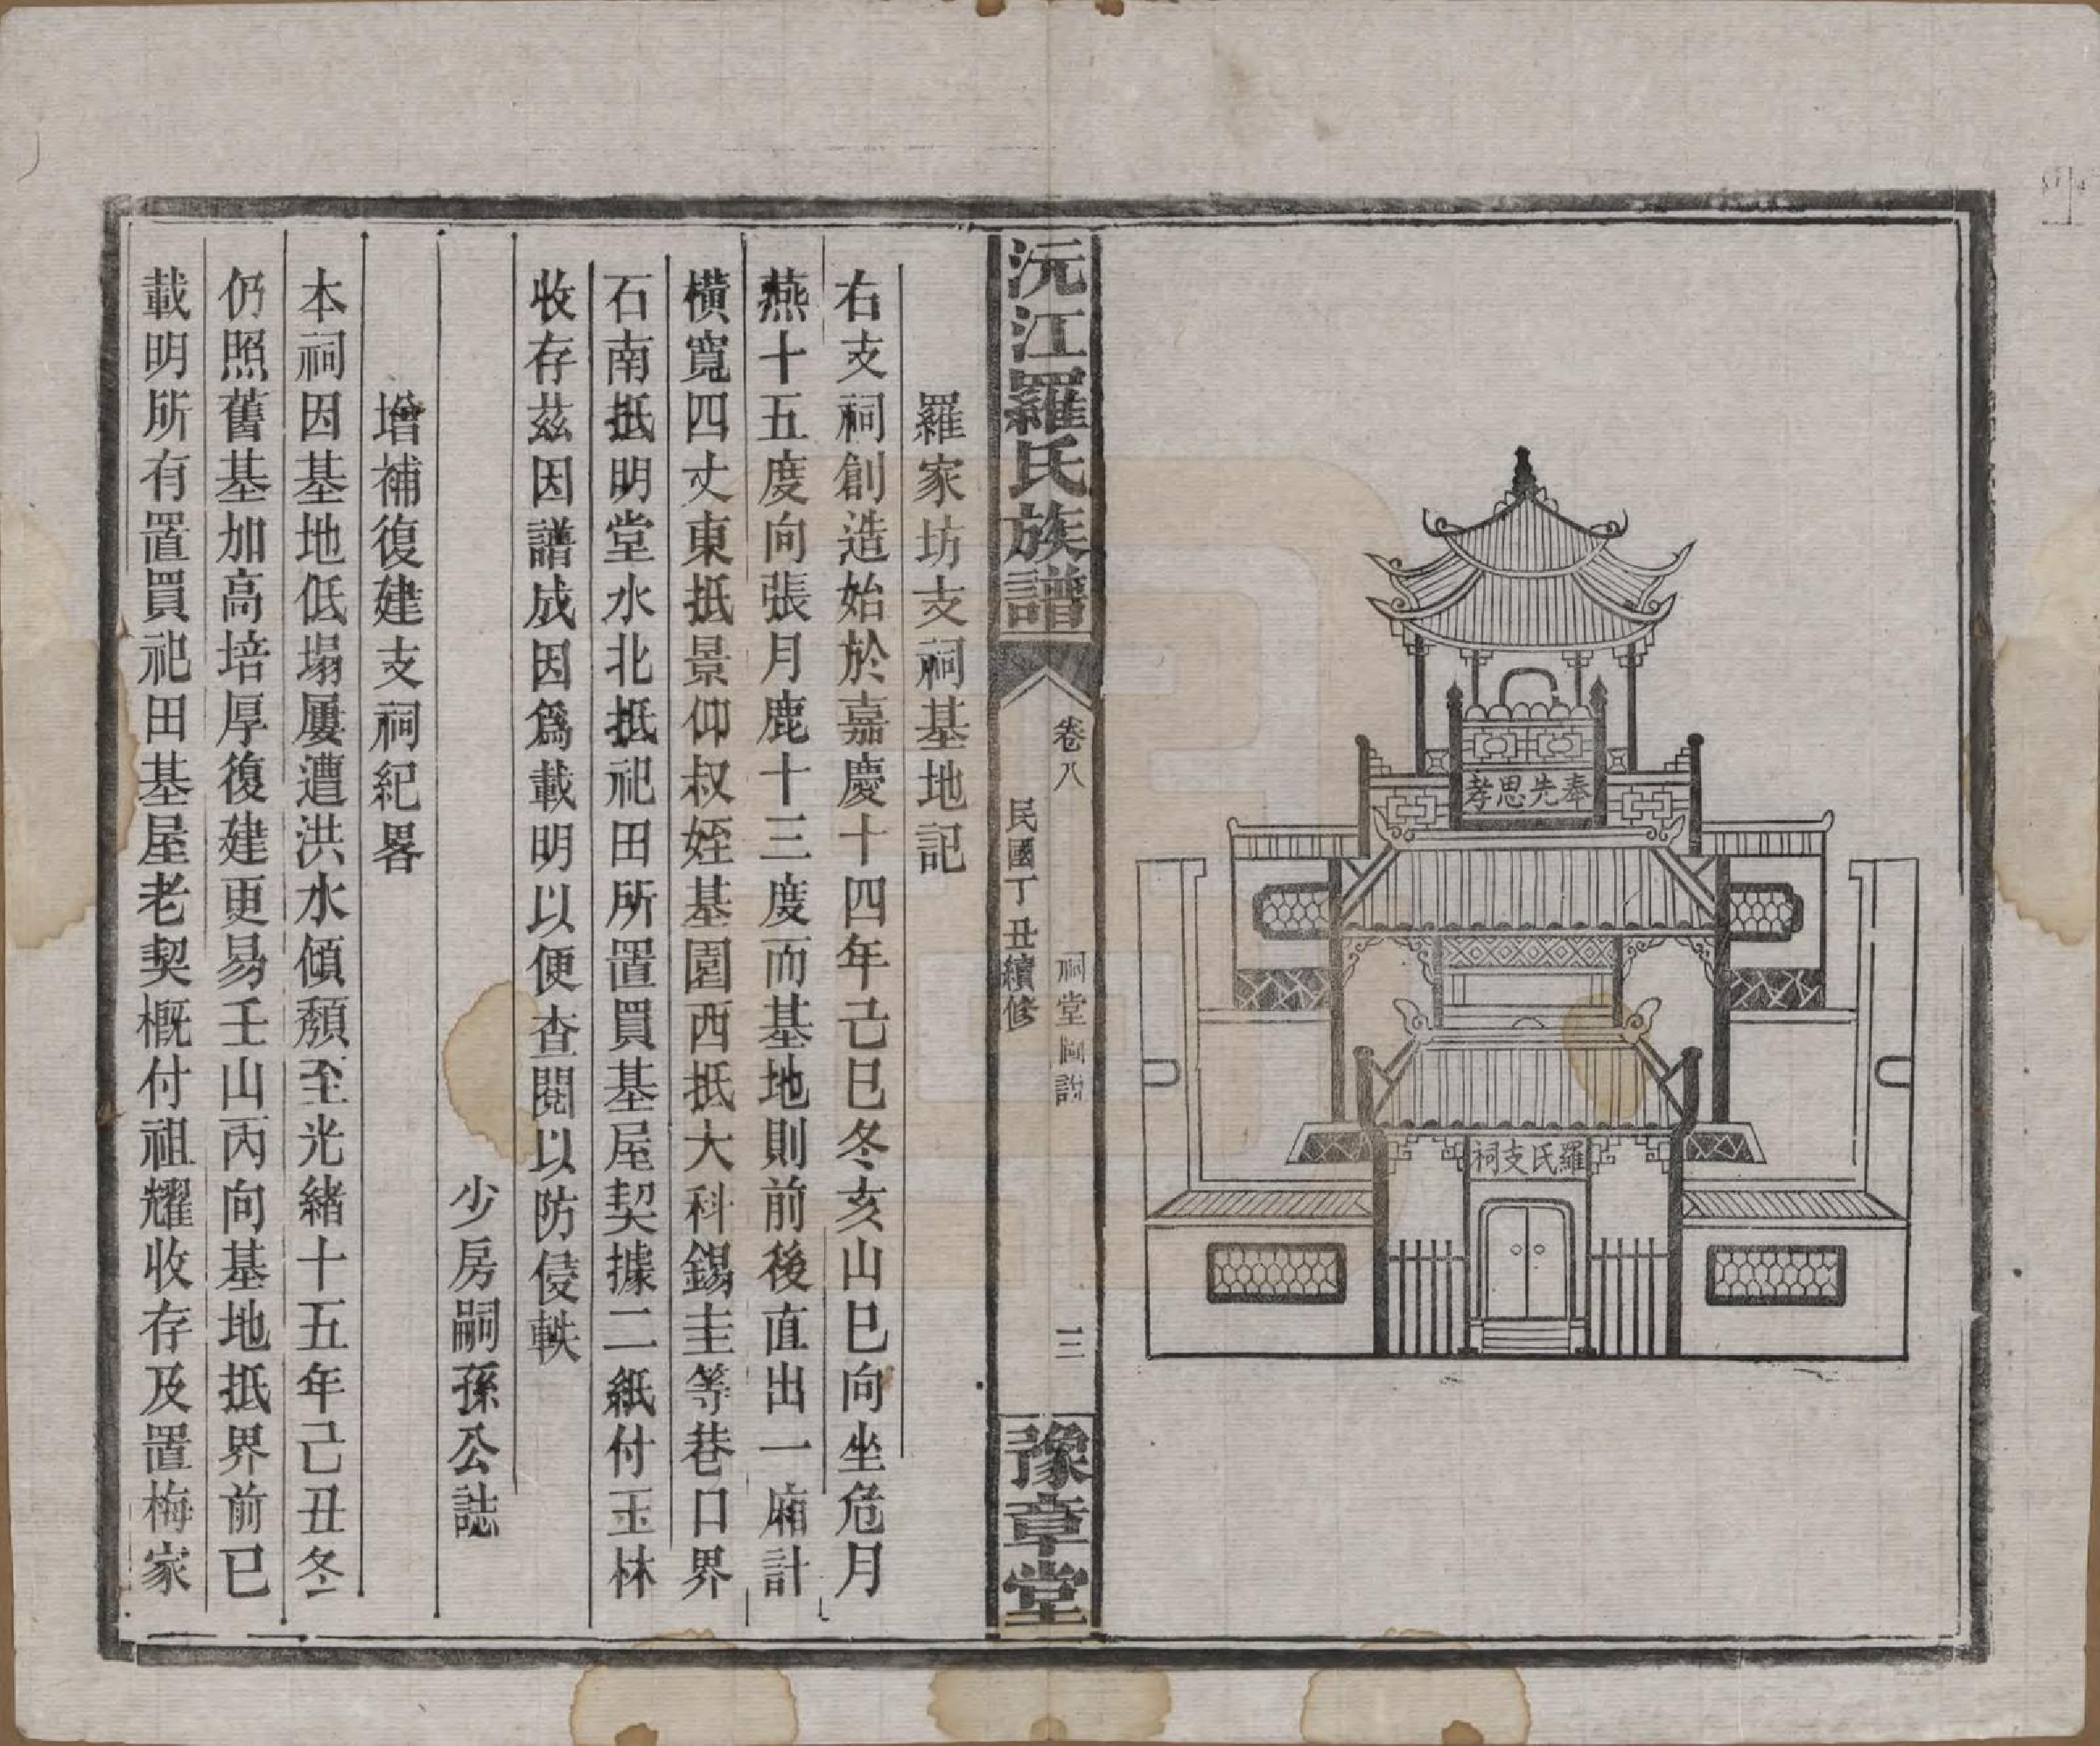 奉先思孝
羅氏支祠
沅江羅氏族譜
卷八
祠堂圖說
三
民國丁丑續修
豫章堂
羅家坊支祠基地記
右支祠創造始於嘉慶十四年己巳冬亥山巳向坐危月
燕十五度向張月鹿十三度而基地則前後直出一廂計
橫寬四丈東抵景仰叔姪基園西抵大科錫圭等巷口界
石南抵明堂水北抵祀田所置買基屋契據二紙付玉林
收存茲因譜成因爲載明以便查閱以防侵軼
少房嗣孫公誌
增補復建支祠紀畧
本祠因基地低塌屢遭洪水傾頹至光緒十五年己丑冬
仍照舊基加高培厚復建更易壬山丙向基地抵界前已
載明所有置買祀田基屋老契概付祖耀收存及置梅家